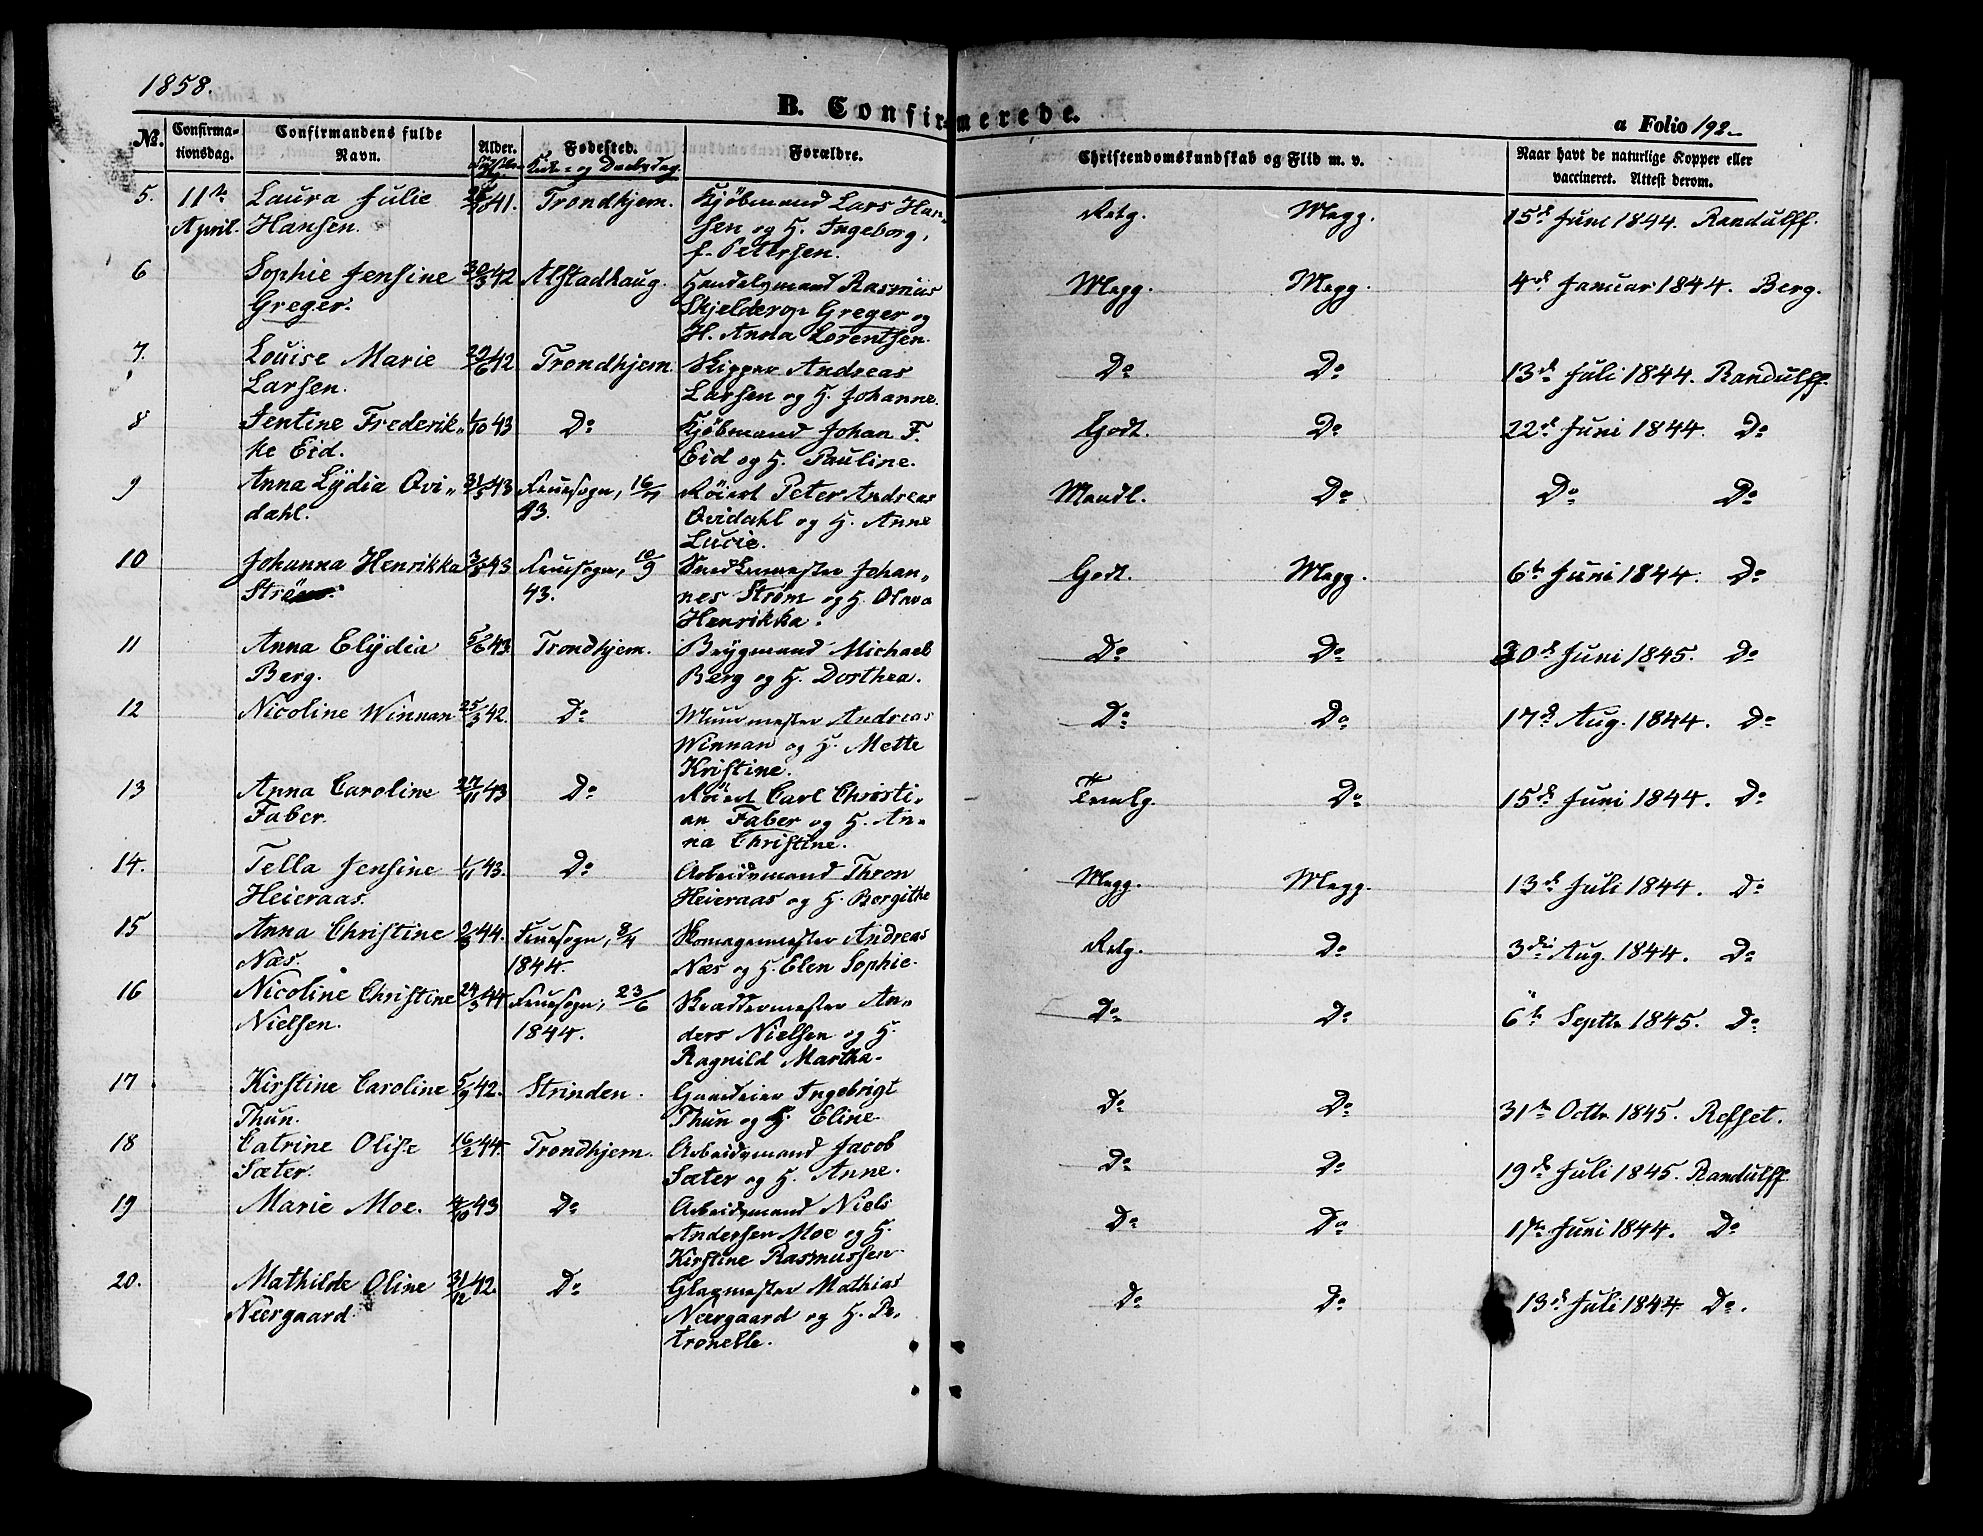 1858.
B. Confirmerede.
a Folio 192
No. Confirma-tionsdag. Confirmandens fulde Navn. Alder. Fødested. Kirke- og Daabsdag. Forældre. Christendomskundskab og Flid m. v. Naar havt de naturlige Kopper eller vaccineret. Attest derom.
5. 11te Laura Julie 1841. Trondhjem. Kjøbmand Lars Han- Retg. Megg. 15de Juni 1844. Randulff.
April. Hansen. sen og H. Ingeborg,
f. Petersen.
6 Sophie Jensine 30/3 42 Alstadhaug. Handelsmand Rasmus Megg. Megg. 4de Januar 1844. Berg.
Greger. Skjelderop Greger og
H. Anna Lorentsen.
7. Louise Marie 29/6 42 Trondhjem. Skipper Andreas Do Do 13de Juli 1844. Randulff.
Larsen. Larsen og H. Johanne.
8 Jentine Frederik- 1/10 43 Do Kjøbmand Johan F. Godt. Do 22de Juni 1844. Do
ke Eid. Eid og H. Pauline.
9 Anna Lydia Qvi- 31/5 43 Fruesogn, 16/7 Røiert Peter Andreas Maadl. Do Do Do
dahl. 43. Qvidahl og H. Anne
Lucie.
10 Johanna Henrikka 43 Fruesogn, 10/9 Snedkermester Johan- Godt. Megg. 6te Juni 1844. Do
Strøm. 43. nes Strøm og H. Olava
Henrikka.
11 Anna Elydia 5/6 43 Trondhjem. Brygmand Michael Do Do 30de Juni 1845. Do
Berg. Berg og H. Dorthea.
12 Nicoline Winnan 25/3 42. Do Muurmester Andreas Do Do 17de Aug. 1844. Do
Winnan og H. Mette
Kristine.
13 Anna Caroline 27/11 43 Do Røiert Carl Christi- Temlg. Do 15de Juni 1844. Do
Faber. an Faber og H. An-
na Christine.
14. Tella Jensine 1/11 43. Do Arbeidsmand Thron Megg. Megg. 13de Juli 1844. Do
Heieraas. Heieraas og H. Borgithe
15 Anna Christine 2/3 44. Fruesogn, 8/4 Skomagermester Andreas Retg. Do 3die Aug. 1844. Do
Næs. 1844. Næs og H. Elen Sophie.
16 Nicoline Christine 24/3 44 Fruesogn, 23/6 Skræddermester An- Do Do 6te Septbr 1845. Do
Nielsen. 1844. ders Nielsen og H.
Ragnild Martha.
17 Kirstine Caroline 5/9 42. Strinden. Gaardeier Ingebrigt Do Do 31te Octbr 1845. Refset.
Thun. Thun og H. Eline.
18 Catrine Olise 16/2 44. Trondhjem. Arbeidsmand Jacob Do Do 19de Juli 1845. Randulff.
Sæter. Sæter og H. Anne.
19 Marie Moe. 4/10 43 Do Arbeidsmand Niels Do Do 1ste Juni 1844. Do
Andersen Moe og H.
Kirstine Rasmussen
20. Mathilde Oline 31/12 42. Do Glasmester Mathias Do Do 13de Juli 1844 Do.
Neergaard Neergaard og H. Pe-
tronelle.